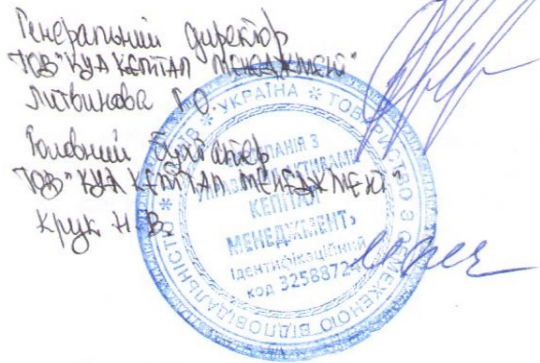 Генеральний директор
ТОВ "КУА КЕПІТАЛ МЕНЕДЖМЕНТ"
Литвинова Г.О.
Головний бухгалтер
ТОВ "КУА КЕПІТАЛ МЕНЕДЖМЕНТ"
Крук Н.В.
* УКРАЇНА * ТОВАРИСТВО З ОБМЕЖЕНОЮ ВІДПОВІДАЛЬНІСТЮ
КОМПАНІЯ З
УПРАВЛІННЯ АКТИВАМИ
КЕПІТАЛ
МЕНЕДЖМЕНТ»
Ідентифікаційний
код 32588724